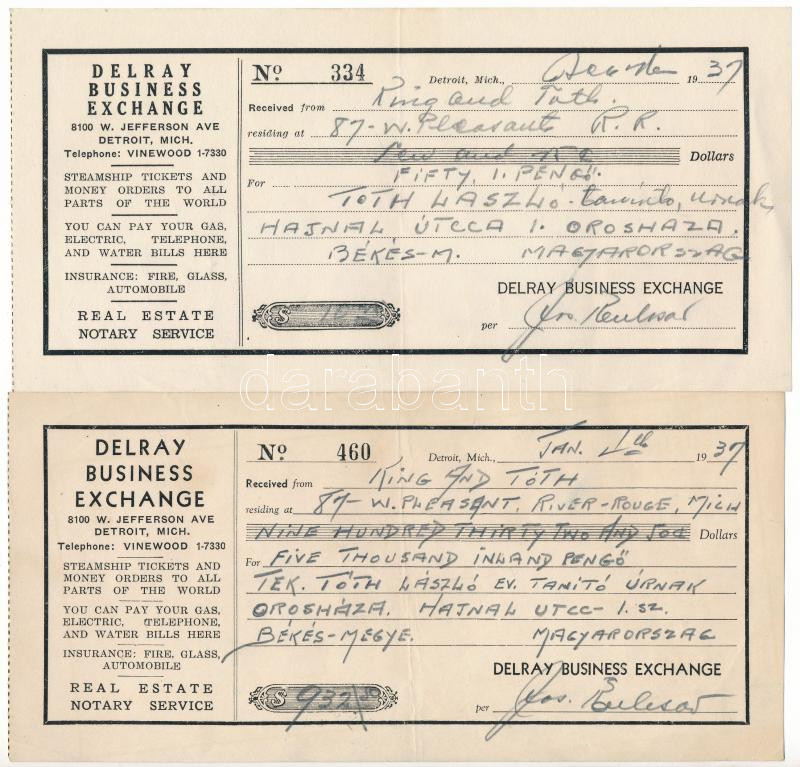 DELRAY
BUSINESS
EXCHANGE
8100 W. JEFFERSON AVE
DETROIT, MICH.
Telephone: VINEWOOD 1-7330
STEAMSHIP TICKETS AND
MONEY ORDERS TO ALL
PARTS OF THE WORLD
YOU CAN PAY YOUR GAS,
ELECTRIC, TELEPHONE,
AND WATER BILLS HERE
INSURANCE: FIRE, GLASS,
AUTOMOBILE
REAL ESTATE
NOTARY SERVICE
No. 334 Detroit, Mich., 1937
Received from King and Toth.
residing at 87-W. Pleasant R. R.
and Dollars
For FIFTY, 1. PENGŐ.
TÓTH LÁSZLÓ. tanító, úrnak
HAJNAL ÚTCCA 1. OROSHÁZA.
BÉKÉS-M. MAGYARORSZÁG
DELRAY BUSINESS EXCHANGE
$ per Jos.
darabanth
DELRAY
BUSINESS
EXCHANGE
8100 W. JEFFERSON AVE
DETROIT, MICH.
Telephone: VINEWOOD 1-7330
STEAMSHIP TICKETS AND
MONEY ORDERS TO ALL
PARTS OF THE WORLD
YOU CAN PAY YOUR GAS,
ELECTRIC, TELEPHONE,
AND WATER BILLS HERE
INSURANCE: FIRE, GLASS,
AUTOMOBILE
REAL ESTATE
NOTARY SERVICE
No. 460 Detroit, Mich., JAN. 1937
Received from KING AND TÓTH
residing at 87-W. PLEASANT, RIVER-ROUGE, MICH
NINE HUNDRED THIRTY TWO AND 50¢ Dollars
For FIVE THOUSAND INLAND PENGŐ
TEK. TÓTH LÁSZLÓ EV. TANÍTÓ ÚRNAK
OROSHÁZA. HAJNAL UTCC- 1. SZ.
BÉKÉS-MEGYE. MAGYARORSZÁG
DELRAY BUSINESS EXCHANGE
$ 932.50 per Jos.